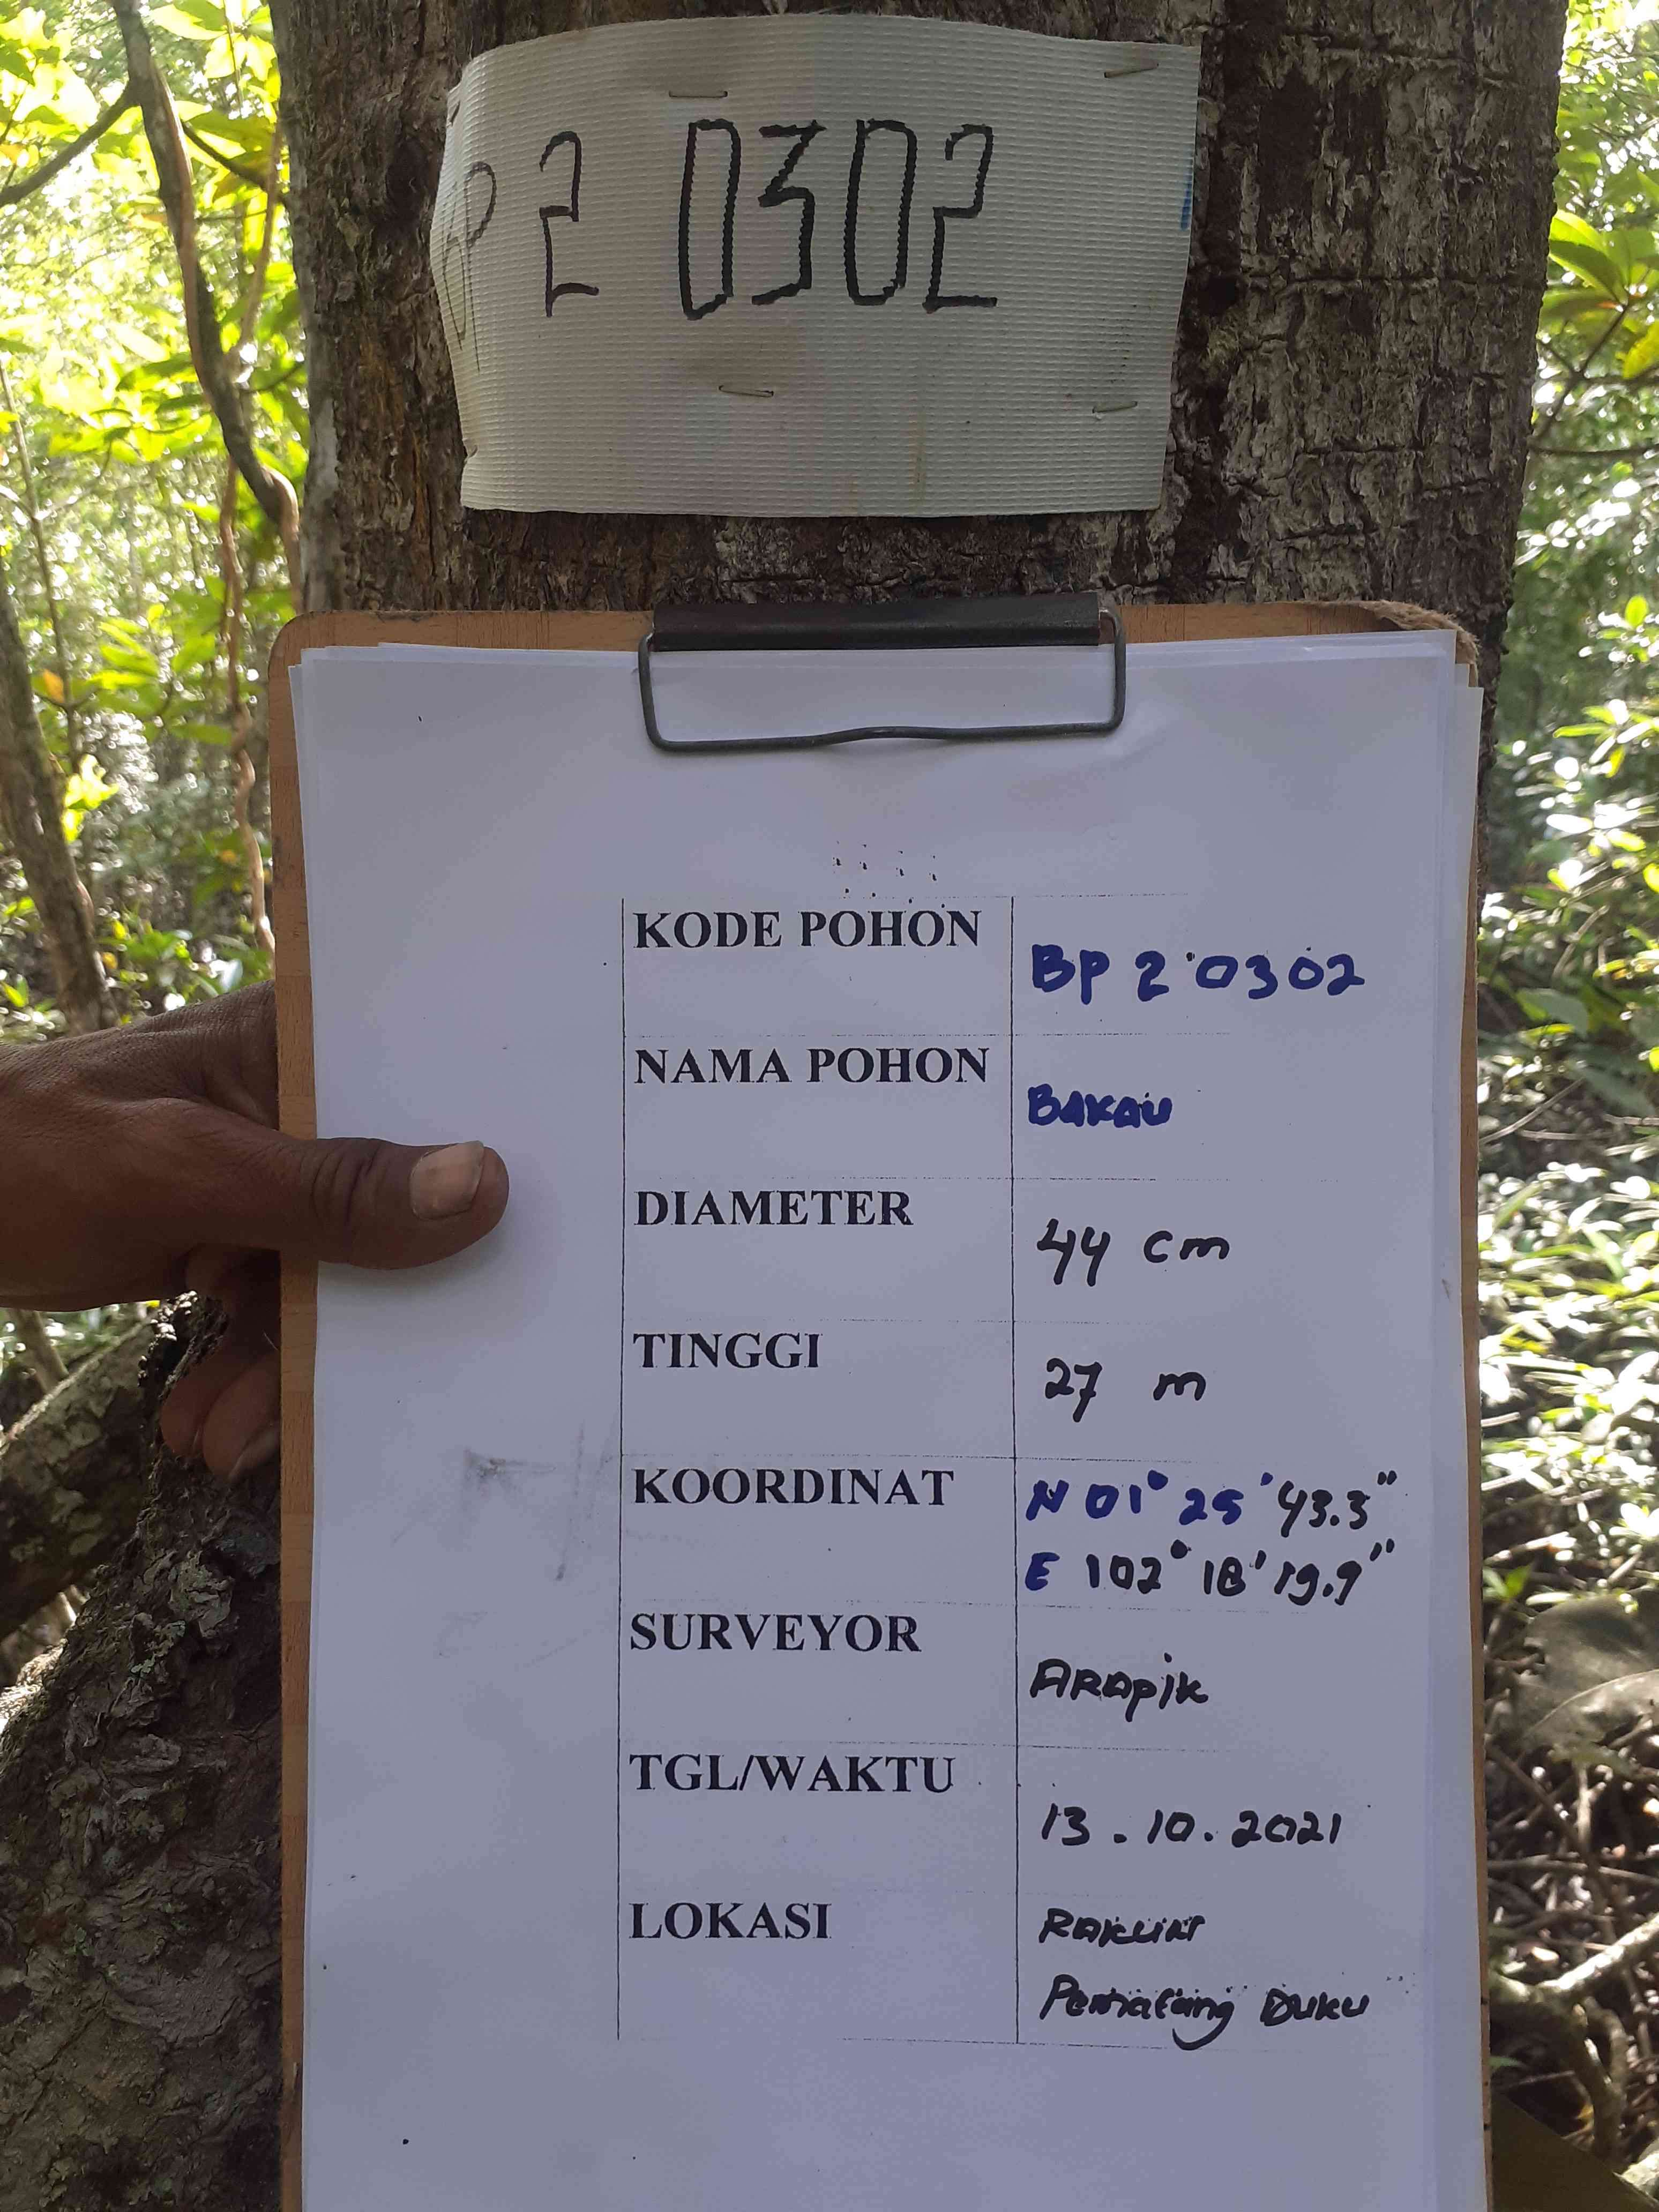 BP 2 0302
KODE POHON
BP 2 0302
NAMA POHON
BAKAU
DIAMETER
44 cm
TINGGI
27 m
KOORDINAT
N 01° 25' 43.3"
E 102° 18' 19.9"
SURVEYOR
ARApik
TGL/WAKTU
13.10.2021
LOKASI
Pematang Duku